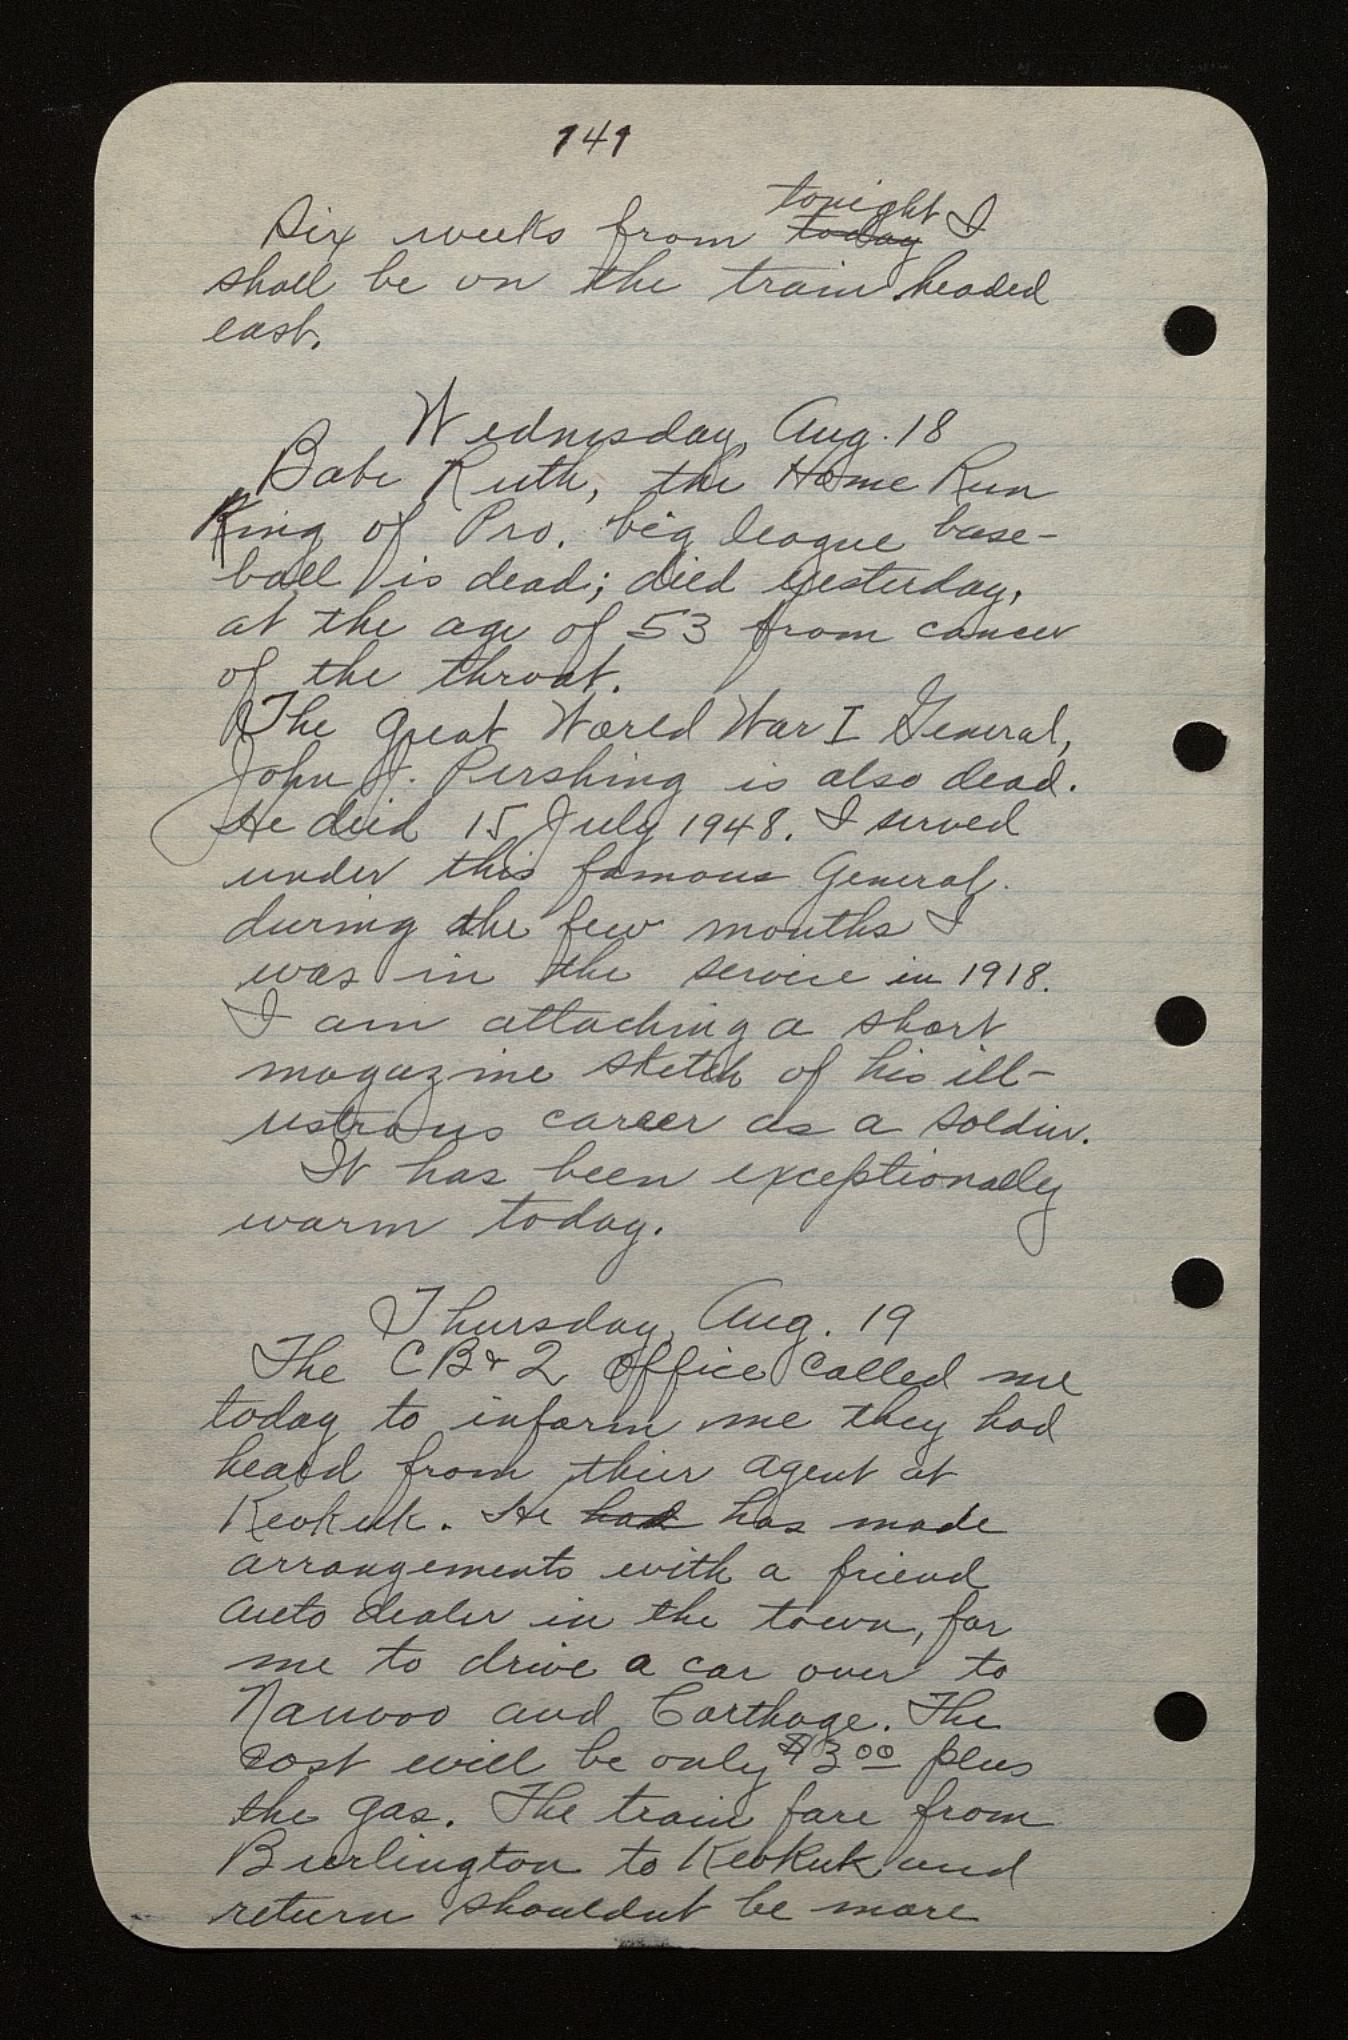 141
tonight
Six weeks from today I
shall be on the train headed
east.
Wednesday, Aug. 18
Babe Ruth, the Home Run
King of Pro. big league base-
ball is dead; died yesterday,
at the age of 53 from cancer
of the throat.
The great World War I General,
John J. Pershing is also dead.
He died 15 July 1948. I served
under this famous General.
during the few months I
was in the service in 1918.
I am attaching a short
magazine sketch of his ill-
ustrous career as a soldier.
It has been exceptionally
warm today.
Thursday, Aug. 19
The CB&Q office called me
today to inform me they had
heard from thier agent at
Keokuk. He had has made
arrangements with a friend
auto dealer in the town, for
me to drive a car over to
Nauvoo and Carthage. The
cost will be only $3.00 plus
the gas. The train fare from
Burlington to Keokuk and
return shouldnt be more